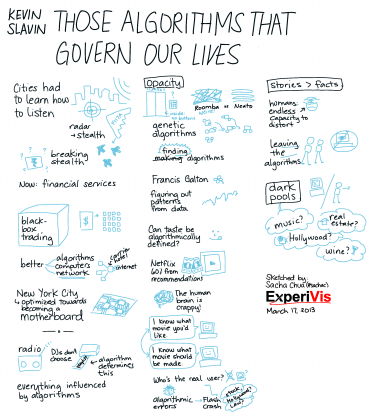 KEVIN
SLAVIN
THOSE ALGORITHMS THAT
GOVERN OUR LIVES
Cities had
to learn how
to listen
radar
→ stealth
breaking
stealth
Now: financial services
black-
box
trading
better
algorithms
computers
network
carrier
hotel
internet
New York City
↳ optimized towards
becoming a
motherboard
radio
DJs don't
choose
algorithm
determines
this
everything influenced
by algorithms
Opacity
Roomba or Neato
genetic
algorithms
finding
making algorithms
Francis Galton
figuring out
patterns
from data
Can taste be
algorithmically
defined?
Netflix
60% from
recommendations
The human
brain is
crappy!
I know what
movie you'd
like
I know what
movie should
be made.
Who's the real user?
algorithmic
errors
Flash
crash
stock,
Hollywood,
Stories > facts
humans:
endless
capacity to
distort
leaving
the
algorithms
dark
pools
music?
real
estate?
Hollywood?
wine?
Sketched by:
Sacha Chua (@sachac)
ExperiVis
March 17, 2013